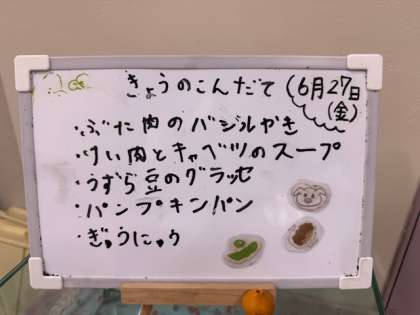 きょうのこんだて (6月27日
(金)
・ぶた肉のバジルやき
・けい肉とキャベツのスープ
・うずら豆のグラッセ
・パンプキンパン
・ぎゅうにゅう